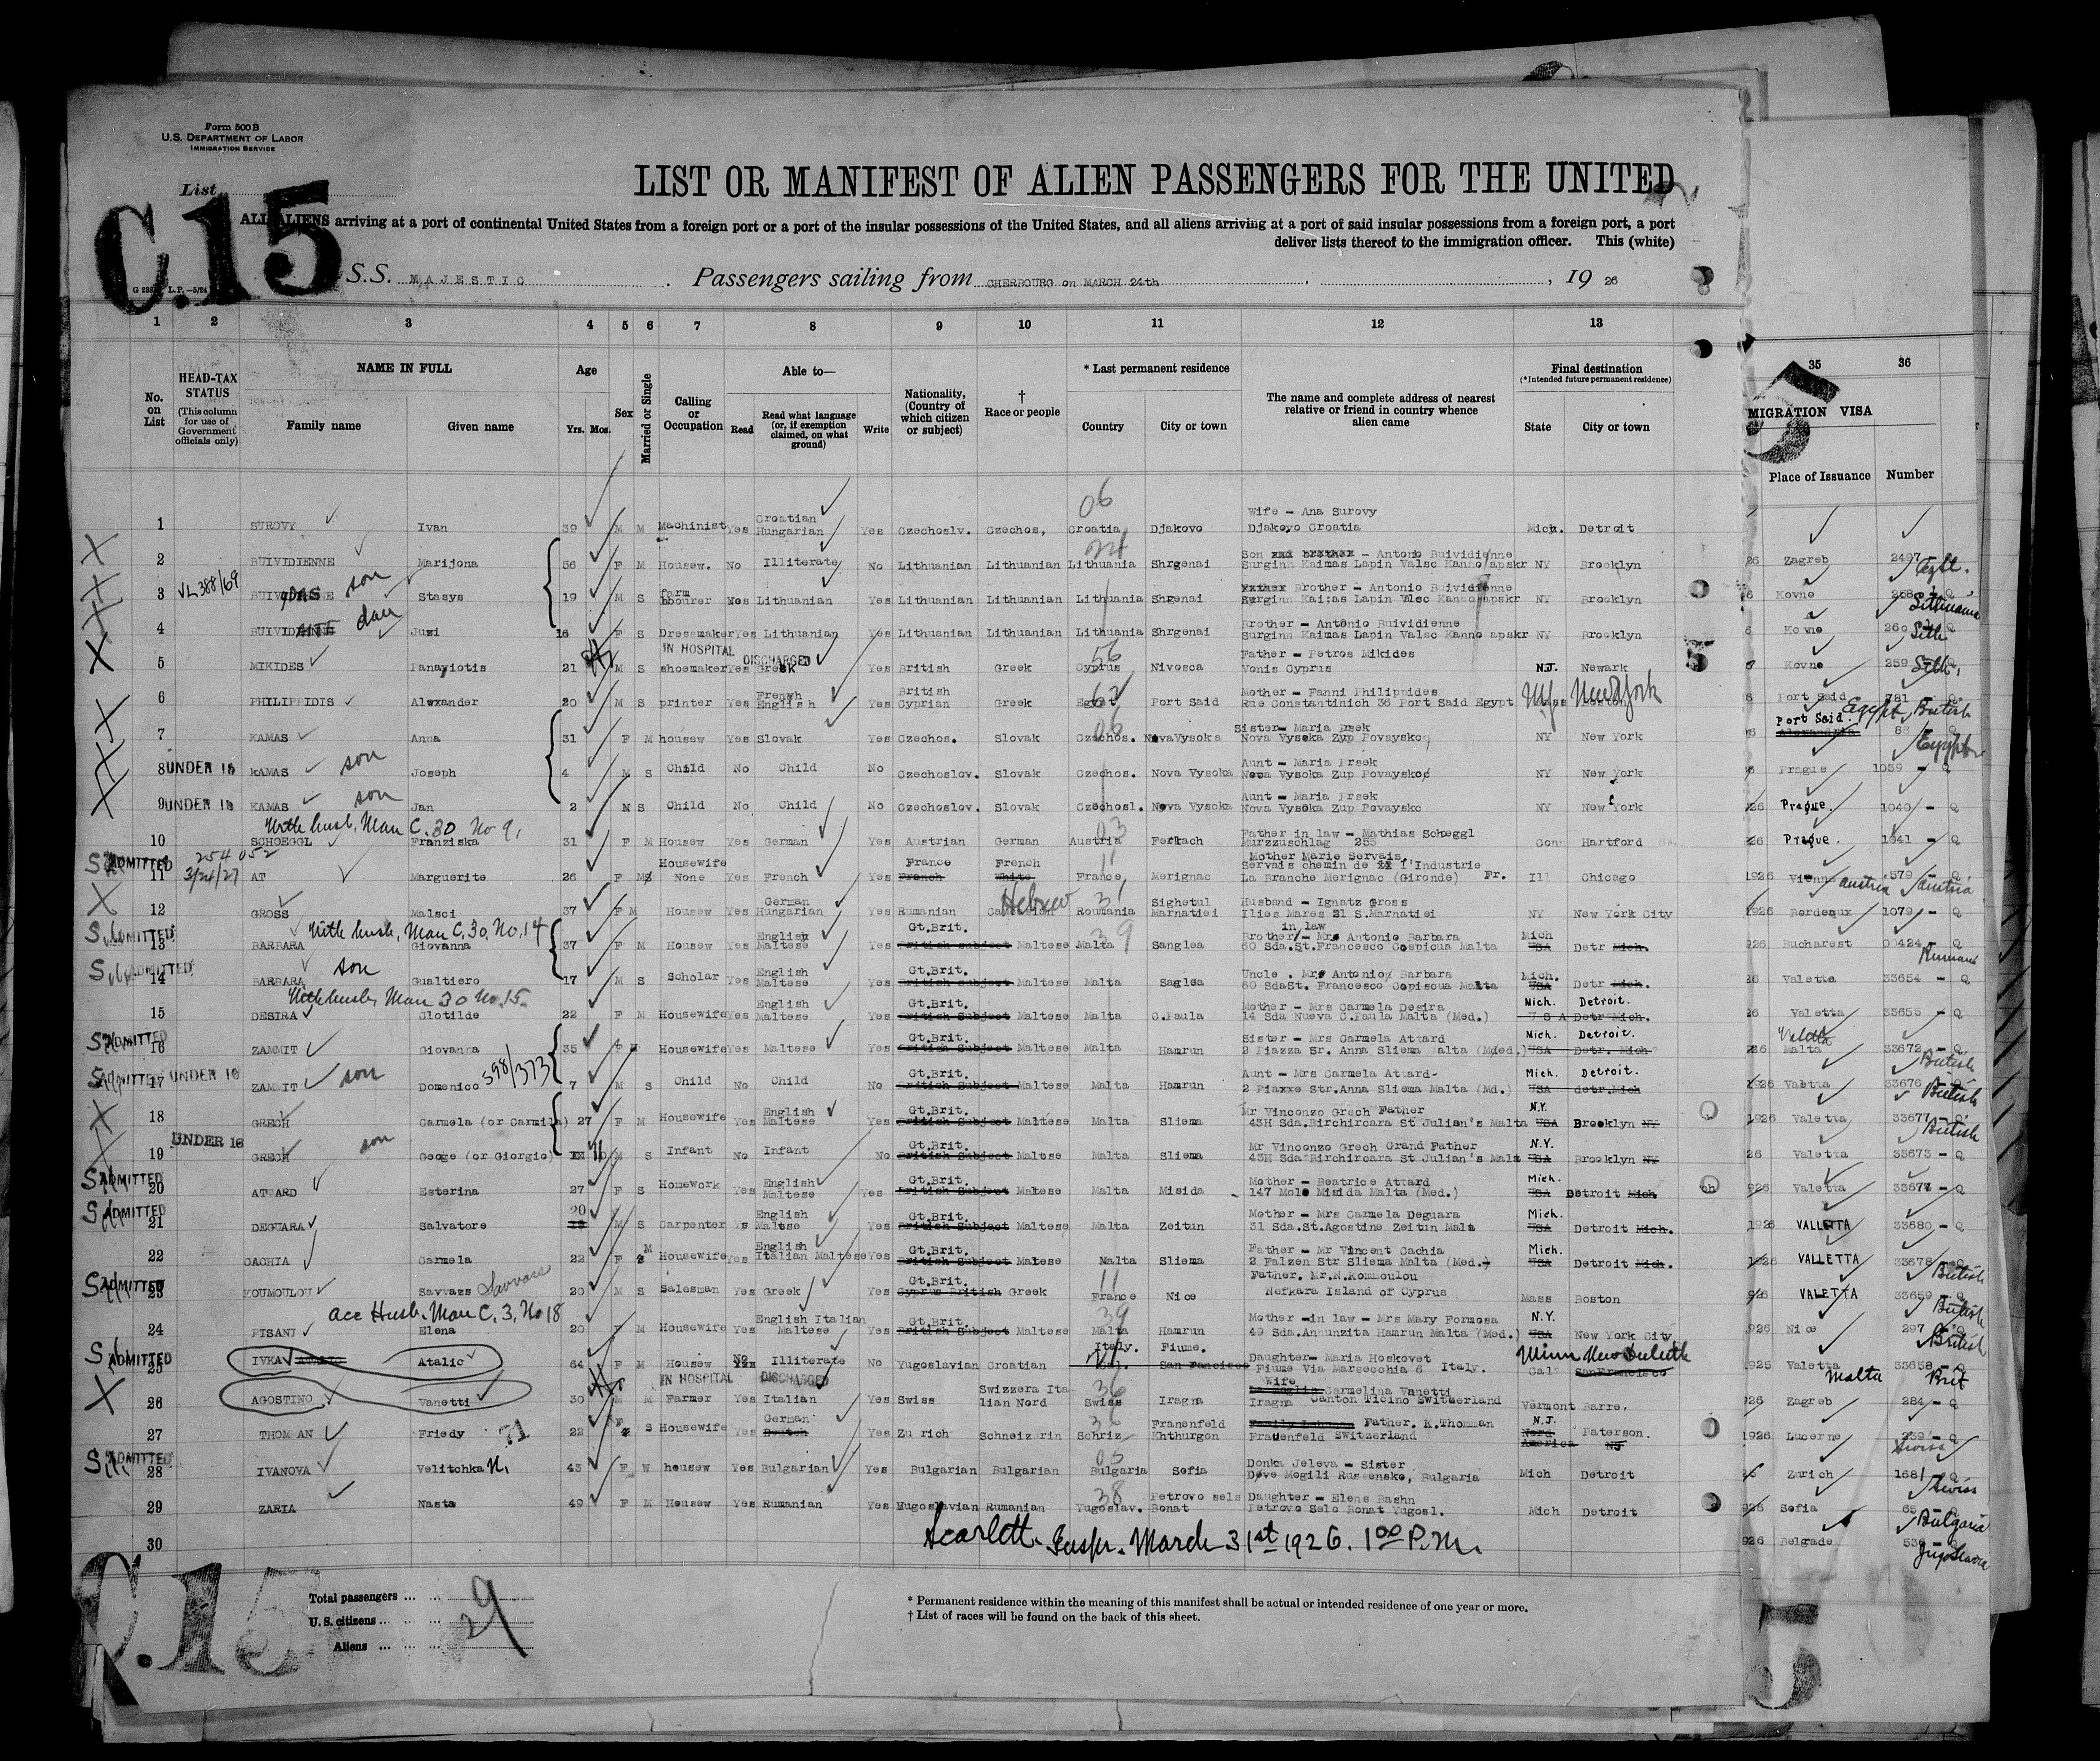 Form 500 B
U.S. DEPARTMENT OF LABOR
IMMIGRATION SERVICE
List
C.15
LIST OR MANIFEST OF ALIEN PASSENGERS FOR THE UNITED
ALL ALIENS arriving at a port of continental United States from a foreign port or a port of the insular possessions of the United States, and all aliens arriving at a port of said insular possessions from a foreign port, a port
deliver lists thereof to the immigration officer. This (white)
S.S. MAJESTIC . Passengers sailing from CHERBOURG on MARCH 24th , 19 26
1 2 3 4 5 6 7 8 9 10 11 12 13 35 36
No. on List
HEAD-TAX STATUS (This column for use of Government officials only)
NAME IN FULL Family name Given name
Age Yrs. Mos.
Sex
Married or Single
Calling or Occupation
Able to— Read Read what language (or, if exemption claimed, on what ground) Write
Nationality, (Country of which citizen or subject)
† Race or people
* Last permanent residence Country City or town
The name and complete address of nearest relative or friend in country whence alien came
Final destination (*Intended future permanent residence) State City or town
MIGRATION VISA Place of Issuance Number
1 SUROVY Ivan 39 M M Machinist Yes Croatian Hungarian Yes Czechoslv. Czechos, Croatia Djakovo Wife - Ana Surovy Djakovo Croatia Mich. Detroit
2 BUIVIDIENNE Marijona 56 F M Housew. No Illiterate No Lithuanian Lithuanian Lithuania Shrgenai Son - Antono Buividienne Surginn Kaimas Lapin Valsc Kanno apskr NY Brooklyn Zagreb 2497
3 son Stasys 19 M S farm Lithuanian Yes Lithuanian Lithuanian Lithuania Shrgenai Brother - Antonio Buividienne NY Brooklyn Kovno
4 dau Juzi 16 F S Dressmaker Yes Lithuanian Yes Lithuanian Lithuanian Lithuania Shrgenai Brother - Antonio Buividienne Surginn Kaimas Lapin Valsc Kanno apskr NY Brooklyn Kovne 260
IN HOSPITAL DISCHARGED
5 MIKIDES Panayiotis 21 M S shoemaker Yes Greek Yes British Greek Cyprus Nivosca Father - Petros Mikides Vonis Cyprus N.J. Newark Kovne 259
6 PHILIPPIDIS Alexander 20 M S printer Yes French English Yes British Cyprian Greek Egypt Port Said Mother - Fanni Philippides Rue Constantinich 36 Port Said Egypt New York Port Said 781
7 KAMAS Anna 31 F M housew Yes Slovak Yes Czechos. Slovak Czechos. Nova Vysoka Sister- Maria Prsek Nova Vysoka Zup Povaysko NY New York Port Said. Egypt British
8 UNDER 16 KAMAS son Joseph 4 M S Child No Child No Czechoslov. Slovak Czechos. Nova Vysoka Aunt - Maria Prsek Nova Vysoka Zup Povaysko NY New York Prague 1039 - Q
9 UNDER 16 KAMAS son Jan 2 M S Child No Child No Czechoslov. Slovak Czechosl. Nova Vysoka Aunt - Maria Prsek Nova Vysoka Zup Povaysko NY New York Prague 1040 - Q
With husb, Man C. 30 No 9,
10 SCHOEGGL Franziska 31 F M Housew Yes German Yes Austrian German Austria Ferkach Father in law - Mathias Schoggl Murzzuschlag 255 Con Hartford Prague. 1041 - Q
ADMITTED 3/24/27
11 AT Marguerite 26 F M Housewife None Yes French Yes France French France, Merignac Mother Marie Servais, Servais chemin de l'Industrie La Branche Merignac (Gironde) Fr. Ill Chicago 1926 Vienna Austria 579 - Q Austria
12 GROSS Malsci 37 F M Housew Yes German Hungarian Yes Rumanian Hebrew Roumania Sighetul Marnatiei Husband - Ignatz Gross Ilies Mares El S.Marnatiei NY New York City 1926 Bordeaux 1079 - Q
With husb, Man C. 30, No. 14
ADMITTED
13 BARBARA Giovanna 37 F M Housew Yes English Maltese Yes Gt.Brit. British subject Maltese Malta Sanglea Brother in law - Antonio Barbara 60 Sda.St.Francesco Cospicua Malta Mich USA Detr Mich. 926 Bucharest 00424 - Q
ADMITTED
14 BARBARA son Gualtiero 17 M S Scholar Yes English Maltese Yes Gt.Brit. British subject Maltese Malta Saglea Uncle . Mr Antonio Barbara 60 SdaSt. Francesco Copiscua Malta Mich. USA Detr Mich. 26 Valetta 33654 - Q
With husb, Man 30 No. 15.
15 DESIRA Clotilde 22 F M Housewife Yes English Maltese Yes Gt.Brit. British Subject Maltese Malta C.Paula Mother - Mrs Carmela Desira 14 Sda Nueva C.Paula Malta (Med.) Mich. Detroit. 26 Valetta 33655 - Q
ADMITTED
16 ZAMMIT Giovanna 35 F M Housewife Yes Maltese Yes Gt.Brit. British Subject Maltese Malta Hamrun Sister - Mrs Carmela Attard 2 Piazza Sr. Anna Sliema Malta (Med.) Mich. Detroit. USA Detr. Mich Valetta Malta 33672 - Q British
ADMITTED UNDER 16
17 ZAMMIT son Domenico 598/373 7 M S Child No Child No Gt.Brit. British Subject Maltese Malta Hamrun Aunt - Mrs Carmela Attard- 2 Piaxxe Str.Anna Sliema Malta (Md.) Mich. Detroit. USA detr.Mich 1926 Valetta 33676 - Q British
18 GRECH Carmela (or Carmila) 27 F M Housewife Yes English Maltese Yes Gt.Brit. British Subject Maltese Malta Sliema Mr Vinconzo Grech Father 43H Sda.Birchircara St Julian's Malta N.Y. USA Brooklyn NY 1926 Valetta 33677 - Q British
UNDER 16
19 GRECH son Geoge (or Giorgio) M S Infant No Infant No Gt.Brit. British Subject Maltese Malta Sliema Mr Vinconzo Grech Grand Father 43H Sda Birchircara St Julian's Malt N.Y. USA Brooklyn NY 26 Valetta 33673 - Q
ADMITTED
20 ATTARD Esterina 27 F S Homework Yes English Maltese Yes Gt.Brit. British Subject Maltese Malta Misida Mother - Beatrice Attard 147 Mole Misida Malta (Med.) Mich. USA Detroit Mich 926 Valetta 33674 - Q
ADMITTED
21 DEGUARA Salvatore 20 M S Carpenter Ys English Maltese Yes Gt.Brit. British Subject Maltese Malta Zeitun Mother - Mrs Carmela Deguara 31 Sda.St.Agostino Zeitun Malt Mich. USA Detroit Mich. 1926 VALLETTA 33680 - Q
22 CACHIA Carmela 22 F M Housewife Yes English Italian Maltese Yes Gt.Brit. British Subject Maltese Malta Sliema Father - Mr Vincent Cachia 2 Falzen Str Sliema Malta (Med.) Mich. USA Detroit Mich. 1926 VALLETTA 33678 - Q British
ADMITTED
23 KOUMOULOU Savvazs Savvase 20 M S Salesman Yes Greek Yes Gt.Brit. Cyprus British Greek France Nice Father. Mr.N.Kommoulou Nefkara Island of Cyprus Mass Boston 926 VALETTA 33659 - Q British
acc Husb. Man C. 3, No 18
24 PISANI Elena 20 F M Housewife Yes English Italian Maltese Yes Gt.Brit. British Subject Maltese Malta Hamrun Mother -in law - Mrs Mary Formosa 49 Sda.Annunzita Hamrun Malta (Med.) N.Y. USA New York City 926 Nice 297 - Q British
ADMITTED
25 IVKA Atalic 64 F M Housew No Illiterate No Yugoslavian Croatian Italy. Fiume. San Francisco Daughter- Maria Hoskovet Fiume Via Marsecchia 6 Italy. Minn New Duluth Cal San Francisco 1925 Valetta Malta 33658 - Q Brit
IN HOSPITAL DISCHARGED
26 AGOSTINO Vanetti 30 M M Farmer Yes Italian Yes Swiss Swizzera Italian Nord Swiss Iragna Wife La Moglia Carmelina Vanetti Iragna Canton Ticino Switzerland Vermont Barre, 926 Zagreb 284 - Q
27 THOMAN Friedy 22 F S Housewife Yes German Yes Zurich Schneizerin Schriz Franenfeld Khthurgon Father. K.Thomman Frauenfeld Switzerland N.J. Nord America Paterson. NJ 1926 Lucerne 239 - Q Swiss
ADMITTED
28 IVANOVA Velitchka N. 43 F W housew Yes Bulgarian Yes Bulgarian Bulgarian Bulgaria Sofia Donka Jeleva - Sister Deve Mogili Russenske, Bulgaria Mich Detroit Zurich 1681 - Q Swiss
29 ZARIA Nasta 49 F M Housew Yes Rumanian Yes Yugoslavian Rumanian Yugoslav. Petrovo sels Bonat Daughter - Elena Bashn Petrovo Selo Bonat Yugosl. Mich Detroit 926 Sofia 65 - Q Bulgaria
30 Scarlett. Inspr. March 31st 1926. 1 00 P.M. 926 Belgrade Jugoslavia
C.15
Total passengers ... ...
U.S. citizens ... ... 29
Aliens ... ... ...
* Permanent residence within the meaning of this manifest shall be actual or intended residence of one year or more.
† List of races will be found on the back of this sheet.